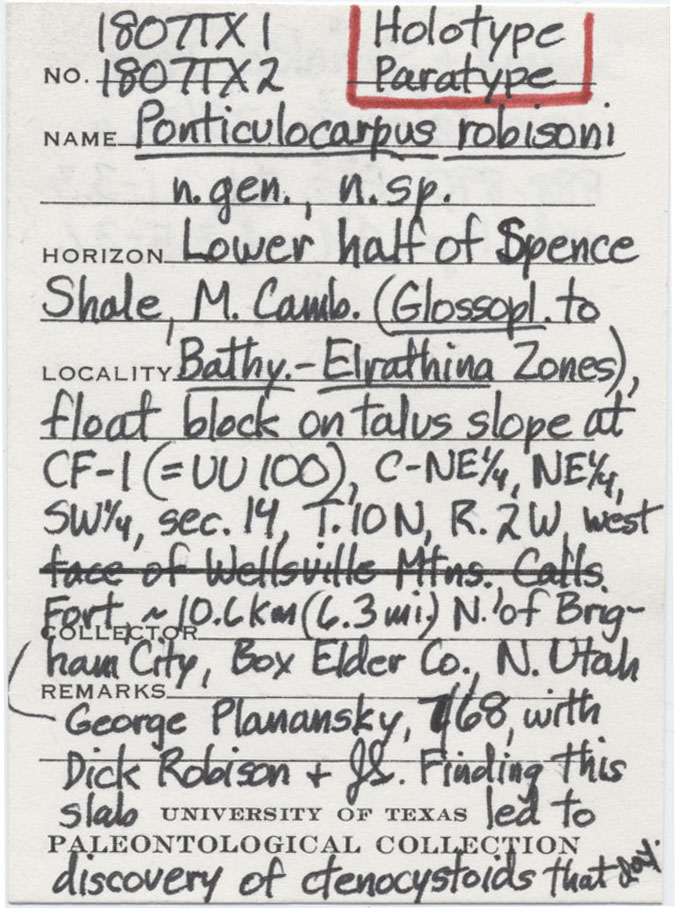 1807TX1 Holotype
NO. 1807TX2 Paratype
NAME Ponticulocarpus robisoni
n.gen., n.sp.
HORIZON Lower half of Spence
Shale, M. Camb. (Glossopl. to
LOCALITY Bathy.-Elrathina Zones),
float block on talus slope at
CF-1 (=UU 100), C-NE¼, NE¼,
SW¼, sec. 14, T.10N, R.2W, west
face of Wellsville Mtns. Calls
Fort, ~10.6km (6.3 mi.) N. of Brig-
COLLECTOR
ham City, Box Elder Co., N. Utah
REMARKS
George Planansky, 7/68, with
Dick Robison + JS. Finding this
slab UNIVERSITY OF TEXAS led to
PALEONTOLOGICAL COLLECTION
discovery of ctenocystoids that day.